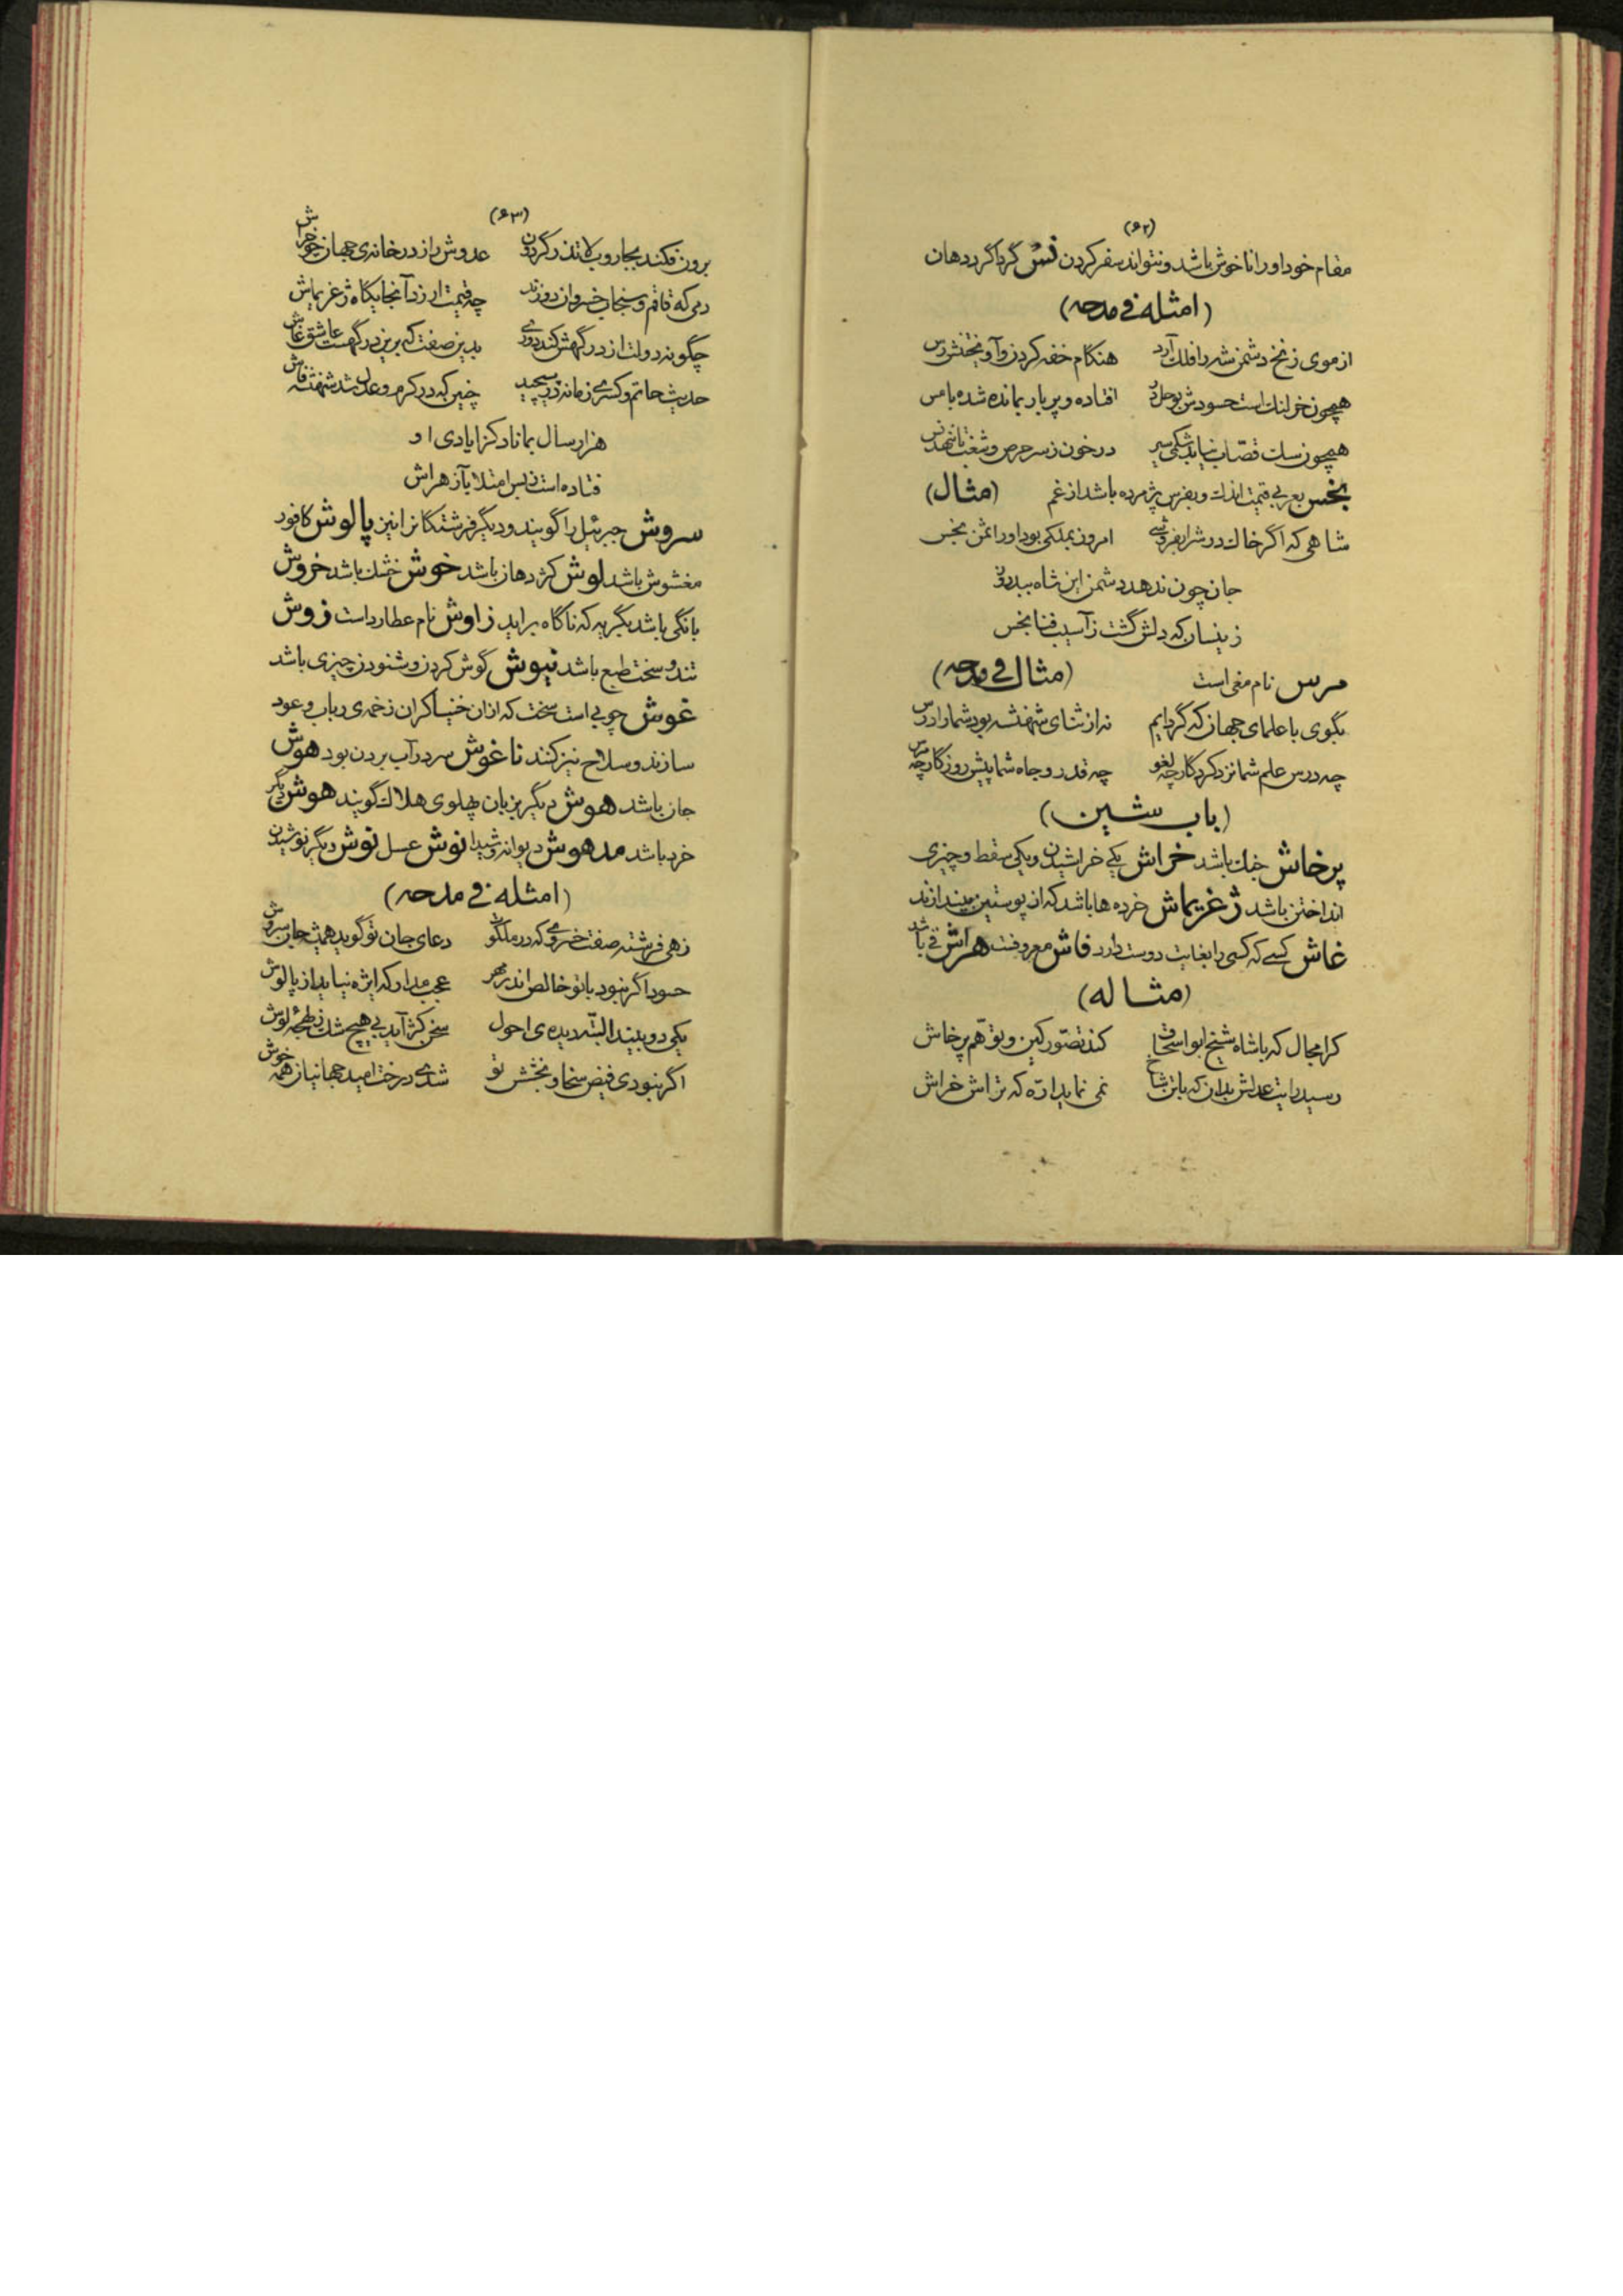 (۶۲)
مقام خود او را ناخوش باشد و نتواند سفر کردن نس گرداگرد دهان
(امثله فی مدحه)
از موی زنخ دشمن شه را فلک آرد هنگام خفه کردن و آویختنش رس
همچون خر لنگ است حسودش بوحل در افتاده و پر بار بمانده شده بامس
همچون سگ قصاب نیابد شکمی سیر در خون ز سر حرص و شغب تا نشهد نس
بخس بعربی قیمت اندک و بفرس پژمرده باشد از غم (مثال)
شاهی که اگر خاک درش را بفروشی امروز بملکی بود او را ثمن بخس
جان چون ندهد دشمن این شاه ببیدردی
زینسان که دلش گشت ز آسیب فنا بخس
مرس نام مغی است (مثال فی مدحه)
بگوی با علمای جهان که گرد ایم نه از ثنای شهنشه بود شما را درس
چه درس علم شما نزد کردگار چه لغو چه قدر و جاه شما پیش روزگار چه مرس
(باب شین)
پرخاش جنگ باشد خراش یکی خراشیدن و یکی سقط و چیزی
انداختن باشد ژغریماش خرده‌ها باشد که از پوستین بیندازند
غاش کسی که کسی را بغایت دوست دارد فاش معروفت هراش قی باشد
(مثاله)
کرا مجال که باشاه شیخ ابو اسحاق کند تصور کین و توهم پرخاش
رسید رایت عدلش بدان که بابن شاخ نمی نماید اره که تراش خراش
(۶۳)
برون فکند بجاروب لا تذر گردون عدوش را ز در خانه‌ی جهان چو خراش
دمی که قاقم و سنجاب خسروان دوزند چه قیمت ارزد آنجایگاه ژغریماش
چگونه دولت از در گهش کند دوری بدین صفت که برین درگهست عاشق غاش
حدیث حاتم و کسری زمانه در پیچید چنین که در کرم و عدل شد شهنشه فاش
هزار سال بماناد کز ایادی او
فتاده است ز بس امتلا بآز هراش
سروش جبرئیل را گویند و دیگر فرشتگانرا نیز پالوش کافور
مغشوش باشد لوش کژ دهان باشد خوش خشک باشد خروش
بانگی باشد بگریه که ناگاه براید زاوش نام عطارد است زوش
تند و سخت طبع باشد نیوش گوش کردن و شنودن چیزی باشد
غوش چوبی است سخت که از آن خنیاگران زخمه‌ی رباب و عود
سازند و سلاح نیز کنند ناغوش سر در آب بردن بود هوش
جان باشد هوش دیگر بزبان پهلوی هلاک گویند هوش دیگر
خرد باشد مدهوش دیوانه و شیدا نوش عسل نوش دیگر نوشیدن
(امثله فی مدحه)
زهی فرشته صفت خسروی که در ملکوت دعای جان تو گوید همیشه جان سروش
حسود اگر نبود با تو خالص اندر مهر عجب مدار که این نیاید از پالوش
یکی دو بیند البته دیده‌ی احول سخن کژ آید بی هیچ شک ز لوش
اگر نبودی فیض سخا و بخشش تو شدی درخت امید جهانیان همه خوش